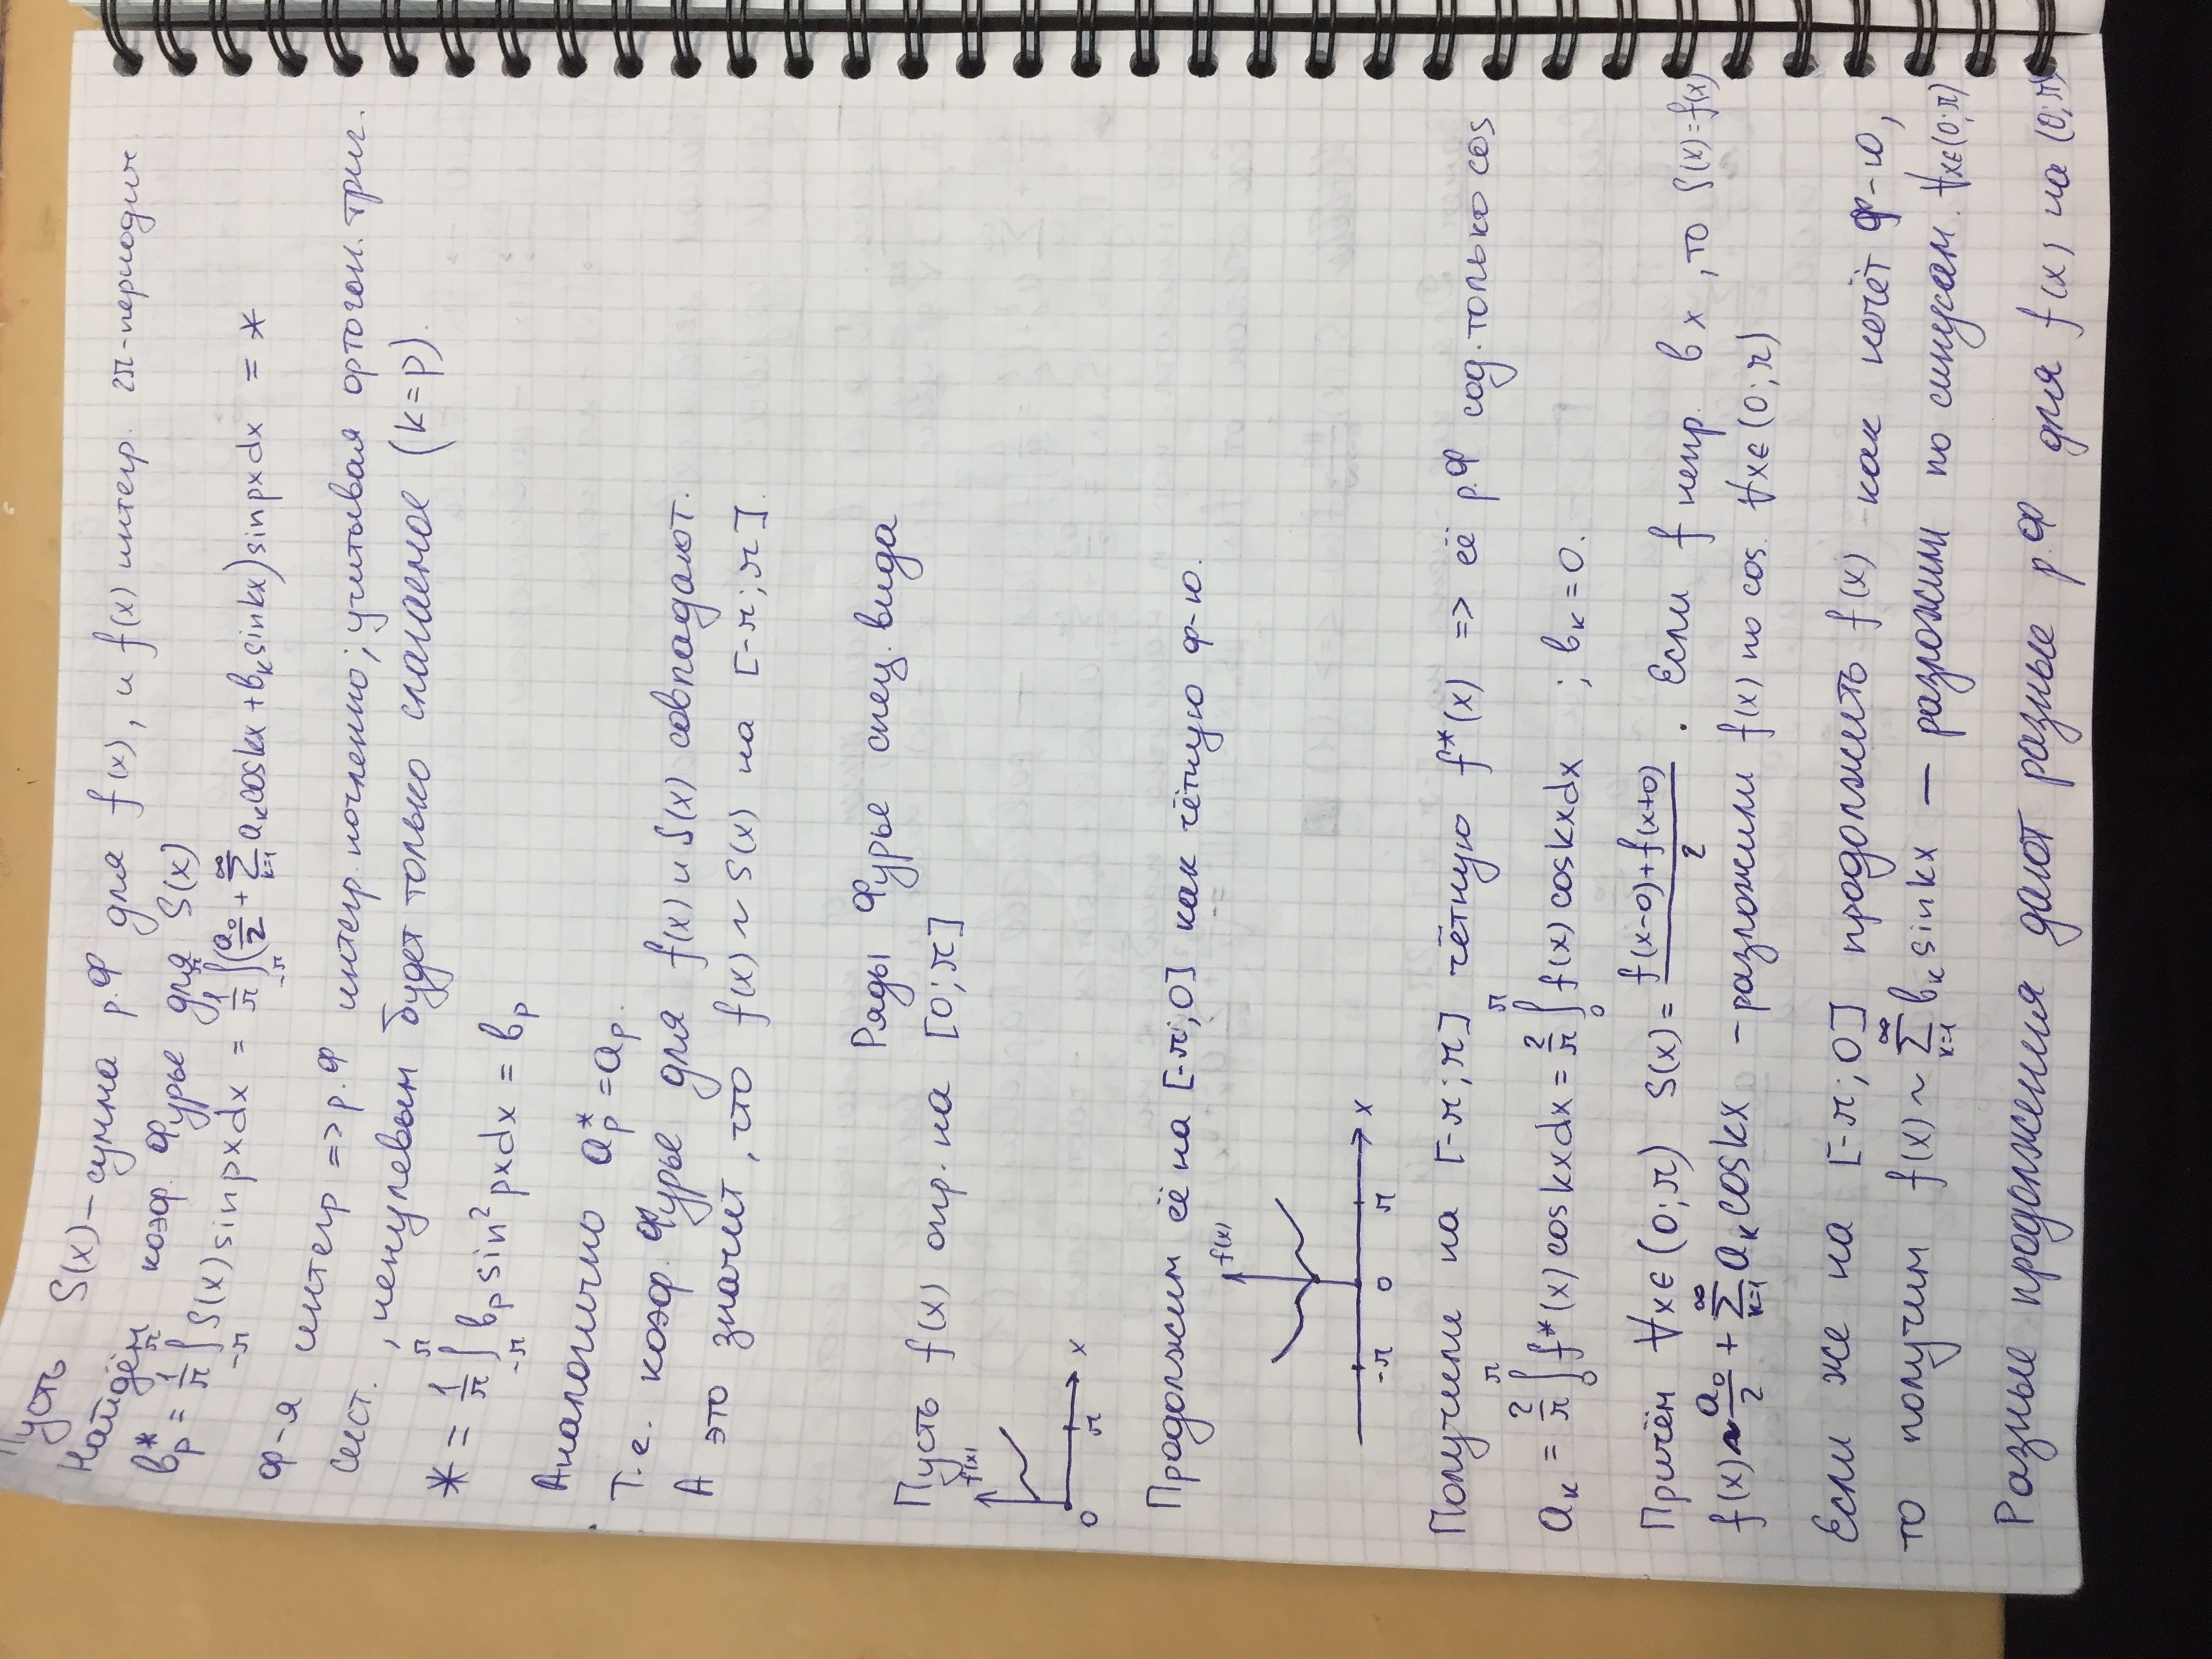 Пусть S(x) – сумма р.Ф для f(x), и f(x) интегр. 2π-периодич.
Найдём коэф. Фурье для S(x)
b*ₚ = 1/π ∫_{-π}^{π} S(x) sin px dx = 1/π ∫_{-π}^{π} (a₀/2 + ∑_{k=1}^{∞} aₖ cos kx + bₖ sin kx) sin px dx = *
Ф-я интегр => р.Ф интегр. почленно; учитывая ортогон. триг.
сист., ненулевым будет только слагаемое (k=p).
* = 1/π ∫_{-π}^{π} bₚ sin² px dx = bₚ
Аналогично a*ₚ = aₚ.
Т.е. коэф. Фурье для f(x) и S(x) совпадают.
А это значит, что f(x) ~ S(x) на [-π; π].
Ряды Фурье спец. вида
Пусть f(x) опр. на [0; π]
f(x)
0 π x
Продолжим её на [-π; 0] как чётную ф-ю.
f(x)
-π 0 π x
Получили на [-π; π] чётную f*(x) => её р.Ф сод. только cos
aₖ = 2/π ∫_{0}^{π} f*(x) cos kx dx = 2/π ∫_{0}^{π} f(x) cos kx dx ; bₖ = 0.
Причём ∀x∈(0; π) S(x) = (f(x-0)+f(x+0))/2 . Если f непр. в x, то S(x)=f(x)
f(x) ~ a₀/2 + ∑_{k=1}^{∞} aₖ cos kx – разложили f(x) по cos. ∀x∈(0; π)
Если же на [-π; 0] продолжить f(x) как нечёт ф-ю,
то получим f(x) ~ ∑_{k=1}^{∞} bₖ sin kx — разложили по синусам. ∀x∈(0; π)
Разные продолжения дают разные р.Ф для f(x) на (0; π)